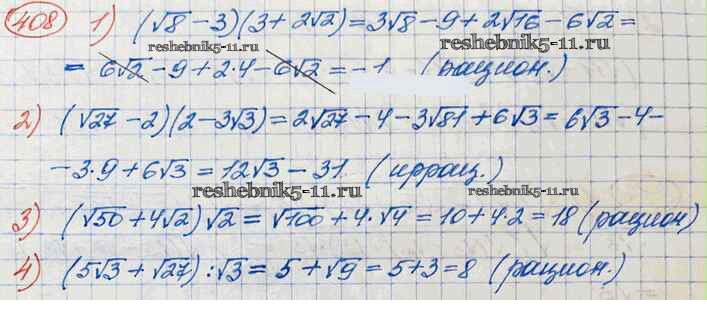 408 1) (√8 - 3)(3 + 2√2) = 3√8 - 9 + 2√16 - 6√2 =
reshebnik5-11.ru reshebnik5-11.ru
= 6√2 - 9 + 2·4 - 6√2 = -1 (рацион.)
2) (√27 - 2)(2 - 3√3) = 2√27 - 4 - 3√81 + 6√3 = 6√3 - 4 -
- 3·9 + 6√3 = 12√3 - 31. (иррац.)
reshebnik5-11.ru reshebnik5-11.ru
3) (√50 + 4√2)√2 = √100 + 4·√4 = 10 + 4·2 = 18 (рацион)
4) (5√3 + √27) : √3 = 5 + √9 = 5 + 3 = 8 (рацион.)